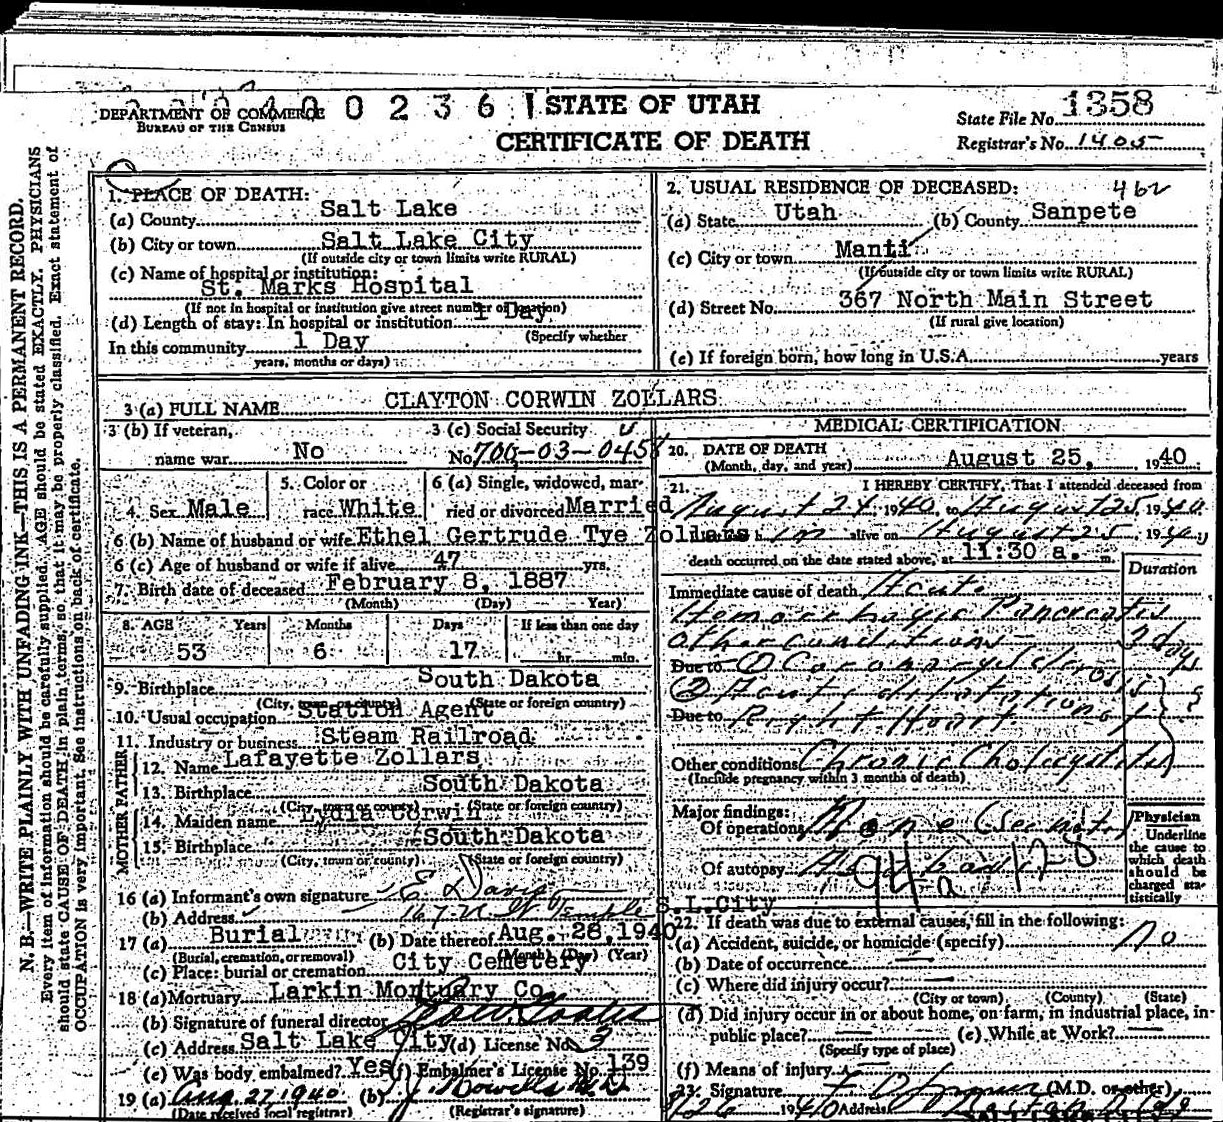 DEPARTMENT OF COMMERCE
BUREAU OF THE CENSUS
0 0 2 3 6 1
STATE OF UTAH
CERTIFICATE OF DEATH
State File No. 1358
Registrar's No. 1405
N. B.—WRITE PLAINLY WITH UNFADING INK—THIS IS A PERMANENT RECORD.
Every item of information should be carefully supplied. AGE should be stated EXACTLY. PHYSICIANS
should state CAUSE OF DEATH in plain terms, so that it may be properly classified. Exact statement of
OCCUPATION is very important. See instructions on back of certificate.
1. PLACE OF DEATH:
(a) County Salt Lake
(b) City or town Salt Lake City
(If outside city or town limits write RURAL)
(c) Name of hospital or institution:
St. Marks Hospital
(If not in hospital or institution give street number or location)
(d) Length of stay: In hospital or institution 1 Day
(Specify whether
In this community 1 Day
years, months or days)
2. USUAL RESIDENCE OF DECEASED: 462
(a) State Utah (b) County Sanpete
(c) City or town Manti
(If outside city or town limits write RURAL)
(d) Street No. 367 North Main Street
(If rural give location)
(e) If foreign born, how long in U.S.A. years
3 (a) FULL NAME CLAYTON CORWIN ZOLLARS
3 (b) If veteran,
name war No
3 (c) Social Security
No. 700-03-0458
4. Sex Male
5. Color or
race White
6 (a) Single, widowed, mar-
ried or divorced Married
6 (b) Name of husband or wife Ethel Gertrude Tye Zollars
6 (c) Age of husband or wife if alive 47 yrs.
7. Birth date of deceased February 8, 1887
(Month) (Day) Year)
8. AGE Years Months Days If less than one day
53 6 17 hr. min.
9. Birthplace South Dakota
(City, town or county) (State or foreign country)
10. Usual occupation Station Agent
11. Industry or business Steam Railroad
FATHER
12. Name Lafayette Zollars
13. Birthplace South Dakota
(City, town or county) (State or foreign country)
MOTHER
14. Maiden name Lydia Corwin
15. Birthplace South Dakota
(City, town or county) (State or foreign country)
16 (a) Informant's own signature E Davis
(b) Address 167 N W Temple S.L.City
17 (a) Burial (b) Date thereof Aug. 28, 1940
(Burial, cremation, or removal) (Month) (Day) (Year)
(c) Place: burial or cremation City Cemetery
18 (a) Mortuary Larkin Mortuary Co
(b) Signature of funeral director
(c) Address Salt Lake City (d) License No.
(e) Was body embalmed? Yes (f) Embalmer's License No. 139
19 (a) Aug 27, 1940 (b)
(Date received local registrar) (Registrar's signature)
MEDICAL CERTIFICATION
20. DATE OF DEATH
(Month, day, and year) August 25, 1940
21. I HEREBY CERTIFY, That I attended deceased from
August 24, 1940, to August 25, 1940
alive on August 25, 1940
death occurred on the date stated above, at 11:30 a. m.
Duration
Immediate cause of death Acute
Hemorrhagic Pancreatis
Other conditions 3 days
Due to ① Coronary Sclerosis
② Acute dilatation of
Due to Right Heart
Other conditions Chronic Cholecystitis
(Include pregnancy within 3 months of death)
Major findings:
Of operations None
Of autopsy
94-a 128
Physician
Underline
the cause to
which death
should be
charged sta-
tistically
22. If death was due to external causes, fill in the following:
(a) Accident, suicide, or homicide (specify) No
(b) Date of occurrence —
(c) Where did injury occur? —
(City or town) (County) (State)
(d) Did injury occur in or about home, on farm, in industrial place, in
public place? — (e) While at Work? —
(Specify type of place)
(f) Means of injury
23. Signature (M.D. or other)
1940 Address